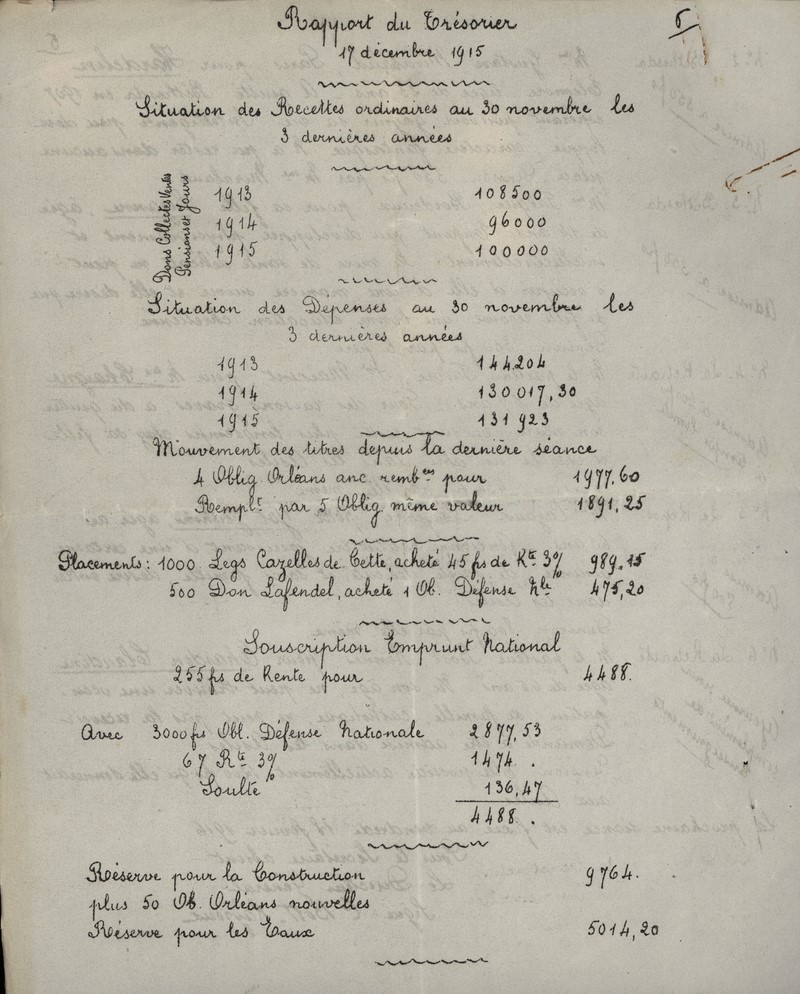 Rapport du Trésorier
5
17 décembre 1915
Situation des Recettes ordinaires au 30 novembre les
3 dernières années
Dons Collectes Ventes
Pensions et Jours
1913 108500
1914 96000
1915 100000
Situation des Dépenses au 30 novembre les
3 dernières années
1913 144.204
1914 130 017,30
1915 131 923
Mouvement des titres depuis la dernière séance
4 Oblig. Orléans anc. remb.ées pour 1977,60
Rempl.t par 5 Oblig même valeur 1891,25
Placements : 1000 Legs Cazelles de Cette, acheté 45 frs de Rte 3% 989.15
500 Don Lafendel, acheté 1 Ob. Défense Nle 475,20
Souscription Emprunt National
255 frs de Rente pour 4488.
Avec 3000 frs Obl. Défense Nationale 2877,53
67 Rte 3% 1474 .
Soulte 136,47
4488 .
Réserve pour la Construction 9764.
plus 50 Ob. Orléans nouvelles
Réserve pour les Eaux 5014,20